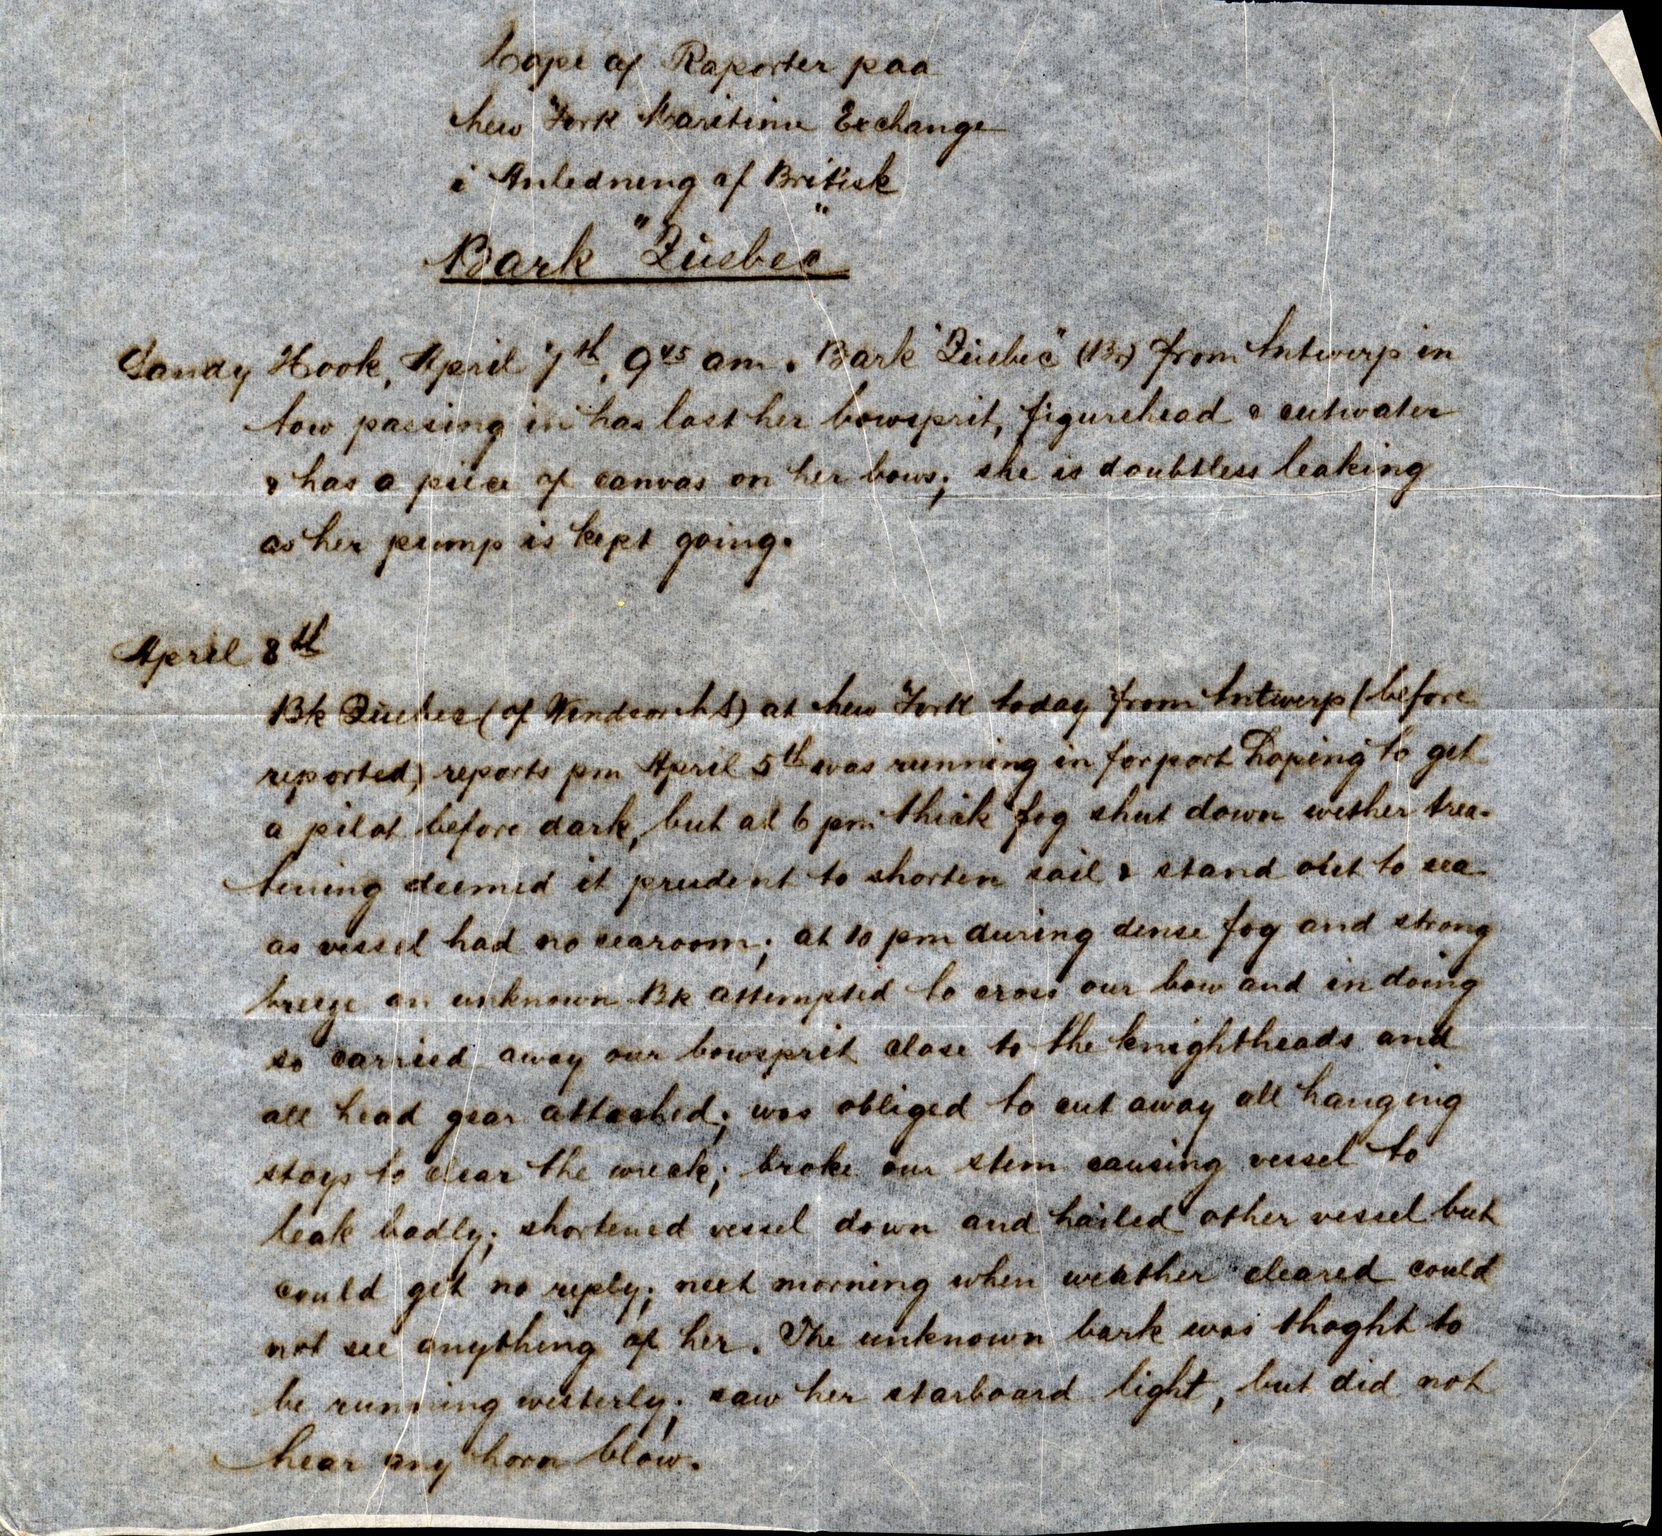 Copi af Raporter paa
New York Maritime Exchange
i Anledning af Britisk
Bark "Quebec"
Sandy Hook, April 7th, 9 45 am. Bark "Quebec" (Br) from Antwerp in
tow passing in has lost her bowsprit, figurehead & cutwater
& has a piece of canvas on her bows; she is doubtless leaking
as her pump is kept going.
April 8th
Bk Quebec (of Windsor NS) at New York today from Antwerp (before
reported) reports pm April 5th was running in for port hoping to get
a pilot before dark, but at 6 pm thick fog shut down wether trea-
tening deemed it prudent to shorten sail & stand out to sea
as vessel had no searoom; at 10 pm during dense fog and strong
breeze an unknown Bk attempted to cross our bow and in doing
so carried away our bowsprit close to the knightheads and
all head gear attached; was obliged to cut away all hanging
stays to clear the wreck; broke our stem causing vessel to
leak badly; shortened vessel down and hailed other vessel but
could get no reply; next morning when weather cleared could
not see anything of her. The unknown bark was thoght to
be running westerly; saw her starboard light, but did not
hear any horn blow.